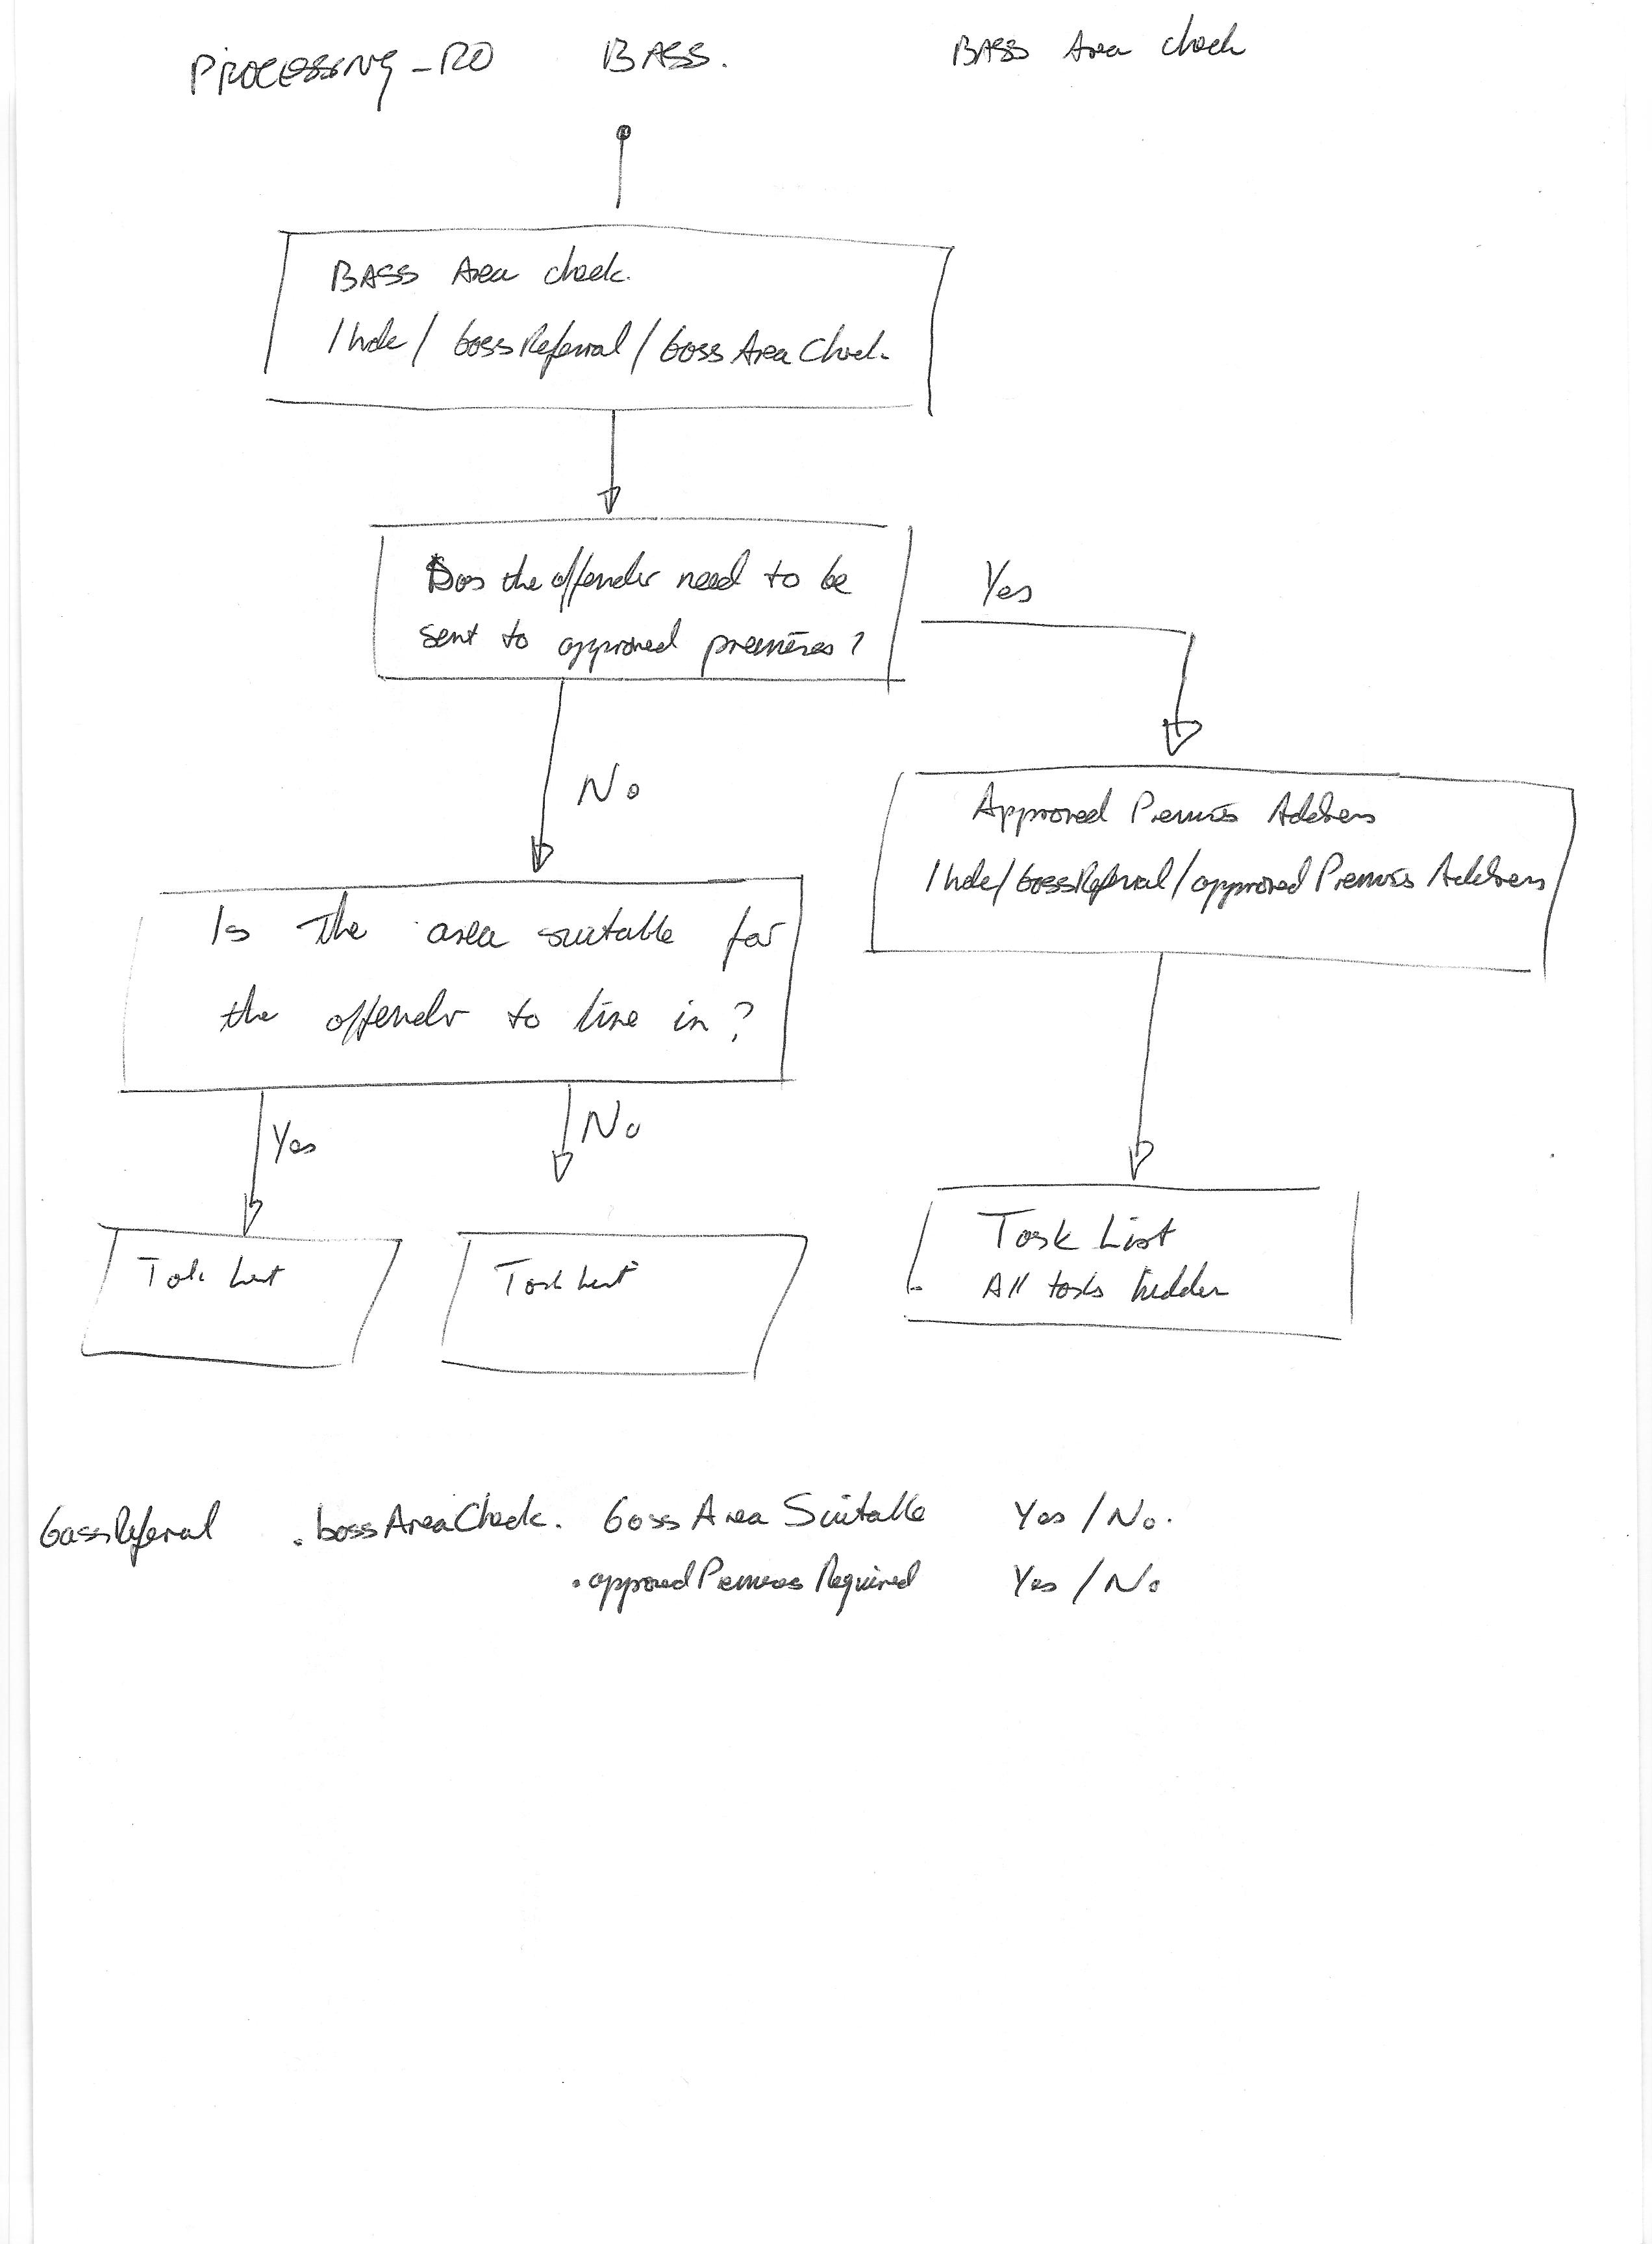 PROCESSING_RO BASS. BASS Area check
BASS Area check.
/hdc/bassReferral/bassAreaCheck.
Does the offender need to be
sent to approved premises?
Yes
No
Approved Premises Address
/hdc/bassReferral/approvedPremisesAddress
Is the area suitable for
the offender to live in?
Yes
No
Task List
Task List
Task List
All tasks hidden
bassReferral .bassAreaCheck. bassAreaSuitable Yes / No.
.approvedPremisesRequired Yes / No